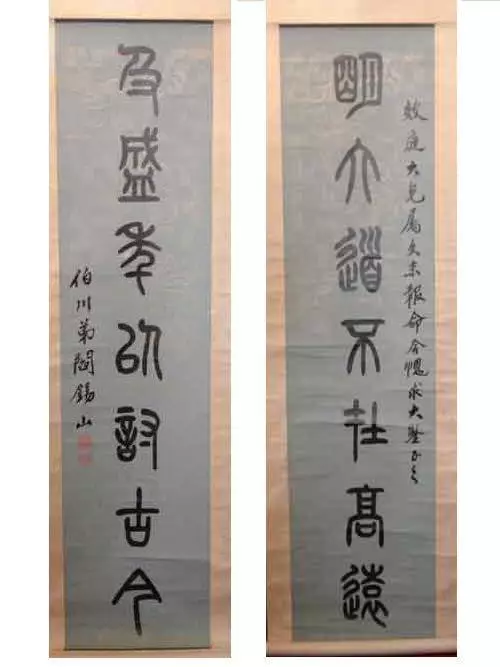 敬庭大兄屬久未報命今愧求大鑒正之
明大道不在高遠
及盛年以討古今
伯川弟閻錫山